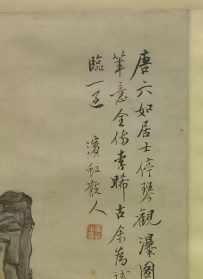 唐六如居士停琴觀瀑圖
筆意全仿李晞古余為試
臨一過 濱虹散人